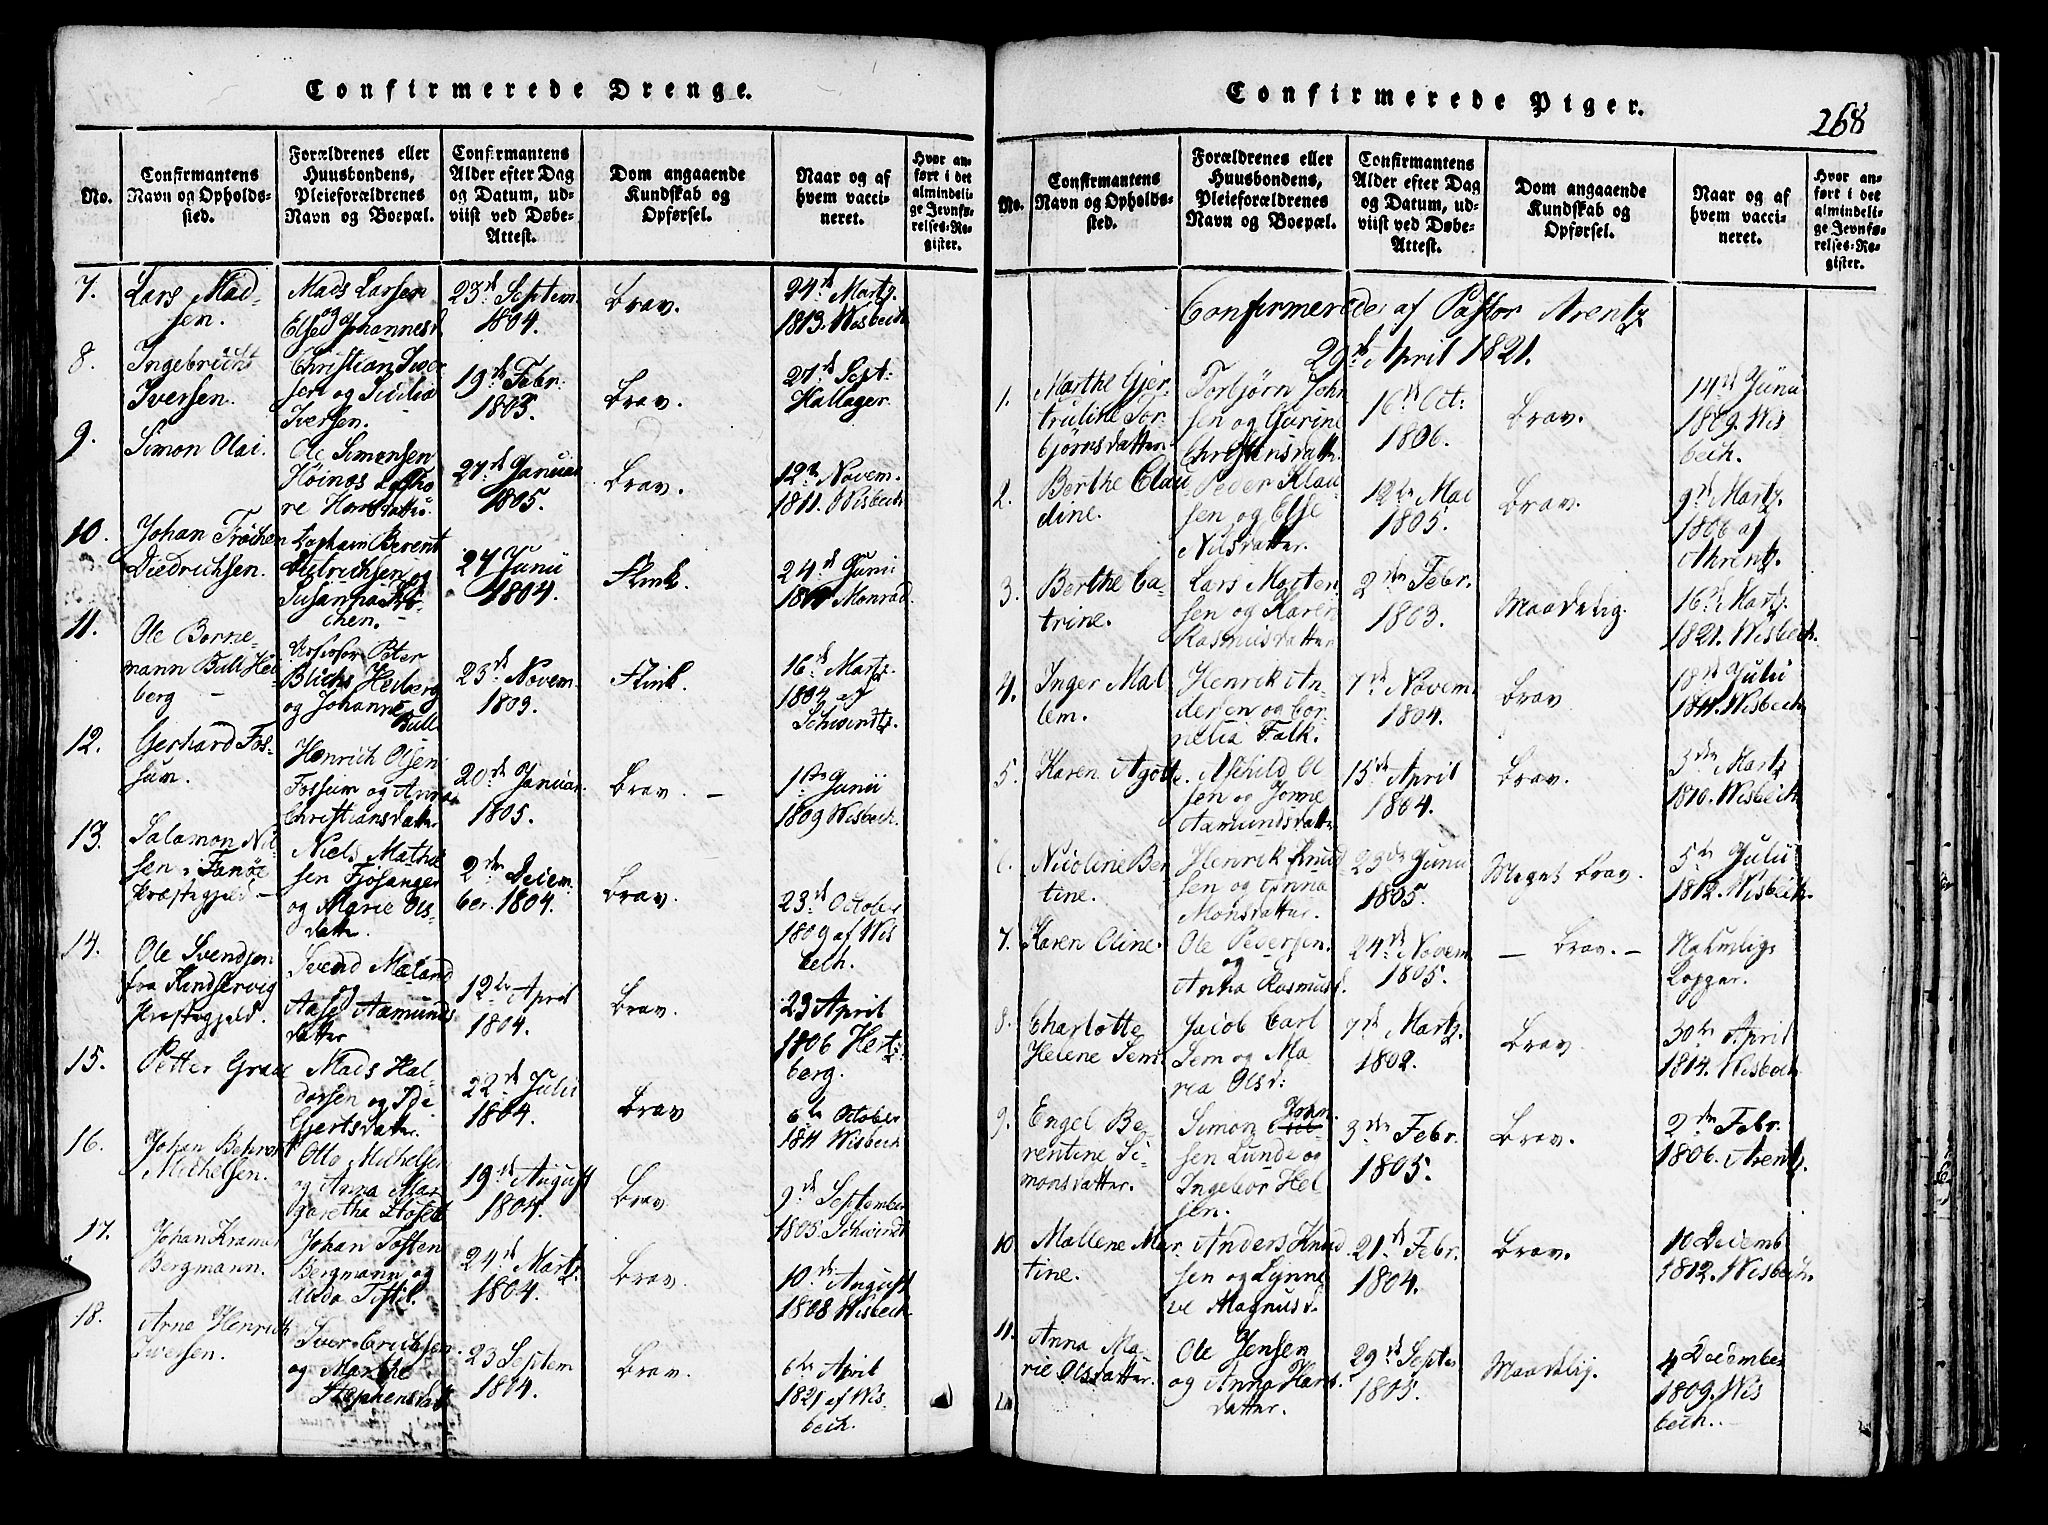 Confirmerede Drenge.
No.
Confirmantens
Navn og Opholds-
sted.
Forældrenes eller
Huusbondens,
Pleieforældrenes
Navn og Boepæl.
Confirmantens
Alder efter Dag
og Datum, ud-
viist ved Døbe-
Attest.
Dom angaaende
Kundskab og
Opførsel.
Naar og af
hvem vacci-
neret.
Hvor an-
ført i det
almindeli-
ge Jevnfø-
relses-Re-
gister.
7.
Lars Mad-
sen.
Mads Larsen
og
Elsed Johannesd.
23d Septem
1804.
brav.
24d Martz.
1813. Wisbech
8.
Ingebricht
Iversen.
Christian Iver
sen og Sicilia
Iversen.
19de Febr:
1805.
brav.
27d Sept:
Hallager.
9.
Simon Olai.
Ole Simensen
Höinæs og Tho
re Hansdatter.
27d Januar
1805.
brav.
12te Novem.
1811. Wisbech
10.
Johan Fröchen
Diedrichsen.
Berent
Didrichsen og
Susanna Frö-
chen.
24 Junii
1804.
Flink.
24d Junii
Monrad.
11.
Ole Borne-
mann Bull Hei
berg -
Peter
Blichs Heiberg
og Johanne
Bull
23d Novem.
1803.
Flink.
16d Martz.
1804 af
Schwindts.
12.
Gerhard Fos-
sum.
Henrich Olsen
Fossum og Anna
Christiansdatter
20d Januar.
1805.
brav. -
1ste Junii
1809 Wisbech.
13.
Salamon Nil-
sen, Fanöe
Præstegjeld -
Niels Mathi
sen Fjosanger
og Marie Ols-
datter.
2den Decem
ber. 1804.
brav.
23d October
1809 af Wis
bech.
14.
Ole Svendsen
fra Kindservig
Præstegjeld.
Svend Mæland
og
Aase Aamunds
datter
12te April
1804.
brav.
23 April
1806 Hert:
berg.
15.
Petter Grave
Mads Hal-
dorsen og Idi
Gjertsdatter.
22d Julii
1804.
brav
6te October
1811 Wisbech
16.
Johan Behrent
Michelsen.
Otto Michelsen
og Anna Mar
garetha
19d August
1804.
brav
9d September
1805 Schwindt
17.
Johan Kramer
Bergmann.
Johan Tosten
Bergmann og
24d Martz.
1804.
brav.
10d August
1808 Wisbech
18.
Arne Henrich
Iversen.
Iver Erichsen.
og Marthe
Stephensdatt
23 Septem
1804.
brav.
6te April
1821 af Wis-
bech.
Confirmerede Piger.
268
No.
Confirmantens
Navn og Opholds-
sted.
Forældrenes eller
Huusbondens,
Pleieforældrenes
Navn og Boepæl.
Confirmantens
Alder efter Dag
og Datum, ud-
viist ved Døbe-
Attest.
Dom angaaende
Kundskab og
Opførsel.
Naar og af
hvem vacci-
neret.
Hvor an-
ført i det
almindeli-
ge Jevnfø-
relses-Re-
gister.
Confirmerede af Pastor Arentz
29d April 1821.
1.
Marthe Gjer-
truline Tor-
björnsdatter.
Torbjörn John
sen og Gurine
Christensdatt.
16d Oct:
1806.
brav.
14d Junii
1809. Wis-
bech.
2.
Berthe Clau
dine.
Peder Klau-
sen og Else
Nilsdatter.
12te Mai
1805.
brav.
9d Martz.
1806 af
Ahrentz.
3.
Berthe Ca-
trine.
Lars Morten
sen og Karen
Rasmusdatter
2den Febr.
1803.
Maadelig.
16d Martz.
1821. Wisbech.
4.
Inger Mal
lem.
Henrik An-
dersen og Cor-
nelia Falk.
7d Novem
1804.
brav
18d Julii
1811. Wisbech
5.
Karen Agothe.
Askild O
sen og Jorine
Aamundsdatte
15de April
1804.
brav.
3den Martz
1810. Wisbech
6.
Nicoline Ber
tine.
Henrik Knud
sen og Anna
Monsdatter.
23de Junii
1805.
Meget brav.
5te Julii
1812. Wisbech.
7.
Karen Oline.
Ole Pedersen.
og
Anna Rasmusd.
24d Novem
1805.
- brav. -
Naturlige
Kopper.
8.
Charlotte
Helene Sem.
Jacob Carl
Sem og Ma
ria Olsd:
7d Martz.
1802.
brav.
30te April
1814. Wisbech
9.
Engel Be-
rentine Si-
monsdatter.
Simon John-
sen Lunde og
Ingebor Hel
sen.
3den Febr.
1805.
brav.
2den Febr.
1806. Arentz.
10.
Mallene Mar
tine.
Anders Knud
sen og Synne
ve Magnusd.
21d Febr.
1804.
brav.
10 Decemb
1812. Wisbech.
11.
Anna Ma-
rie Olsdatter.
Ole Jensen
og Anna Hans
datter.
29d Septe
1805.
Maadelig.
4 December
1809. Wis
bech.